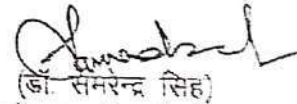 (डॉ. समरेन्द्र सिंह)